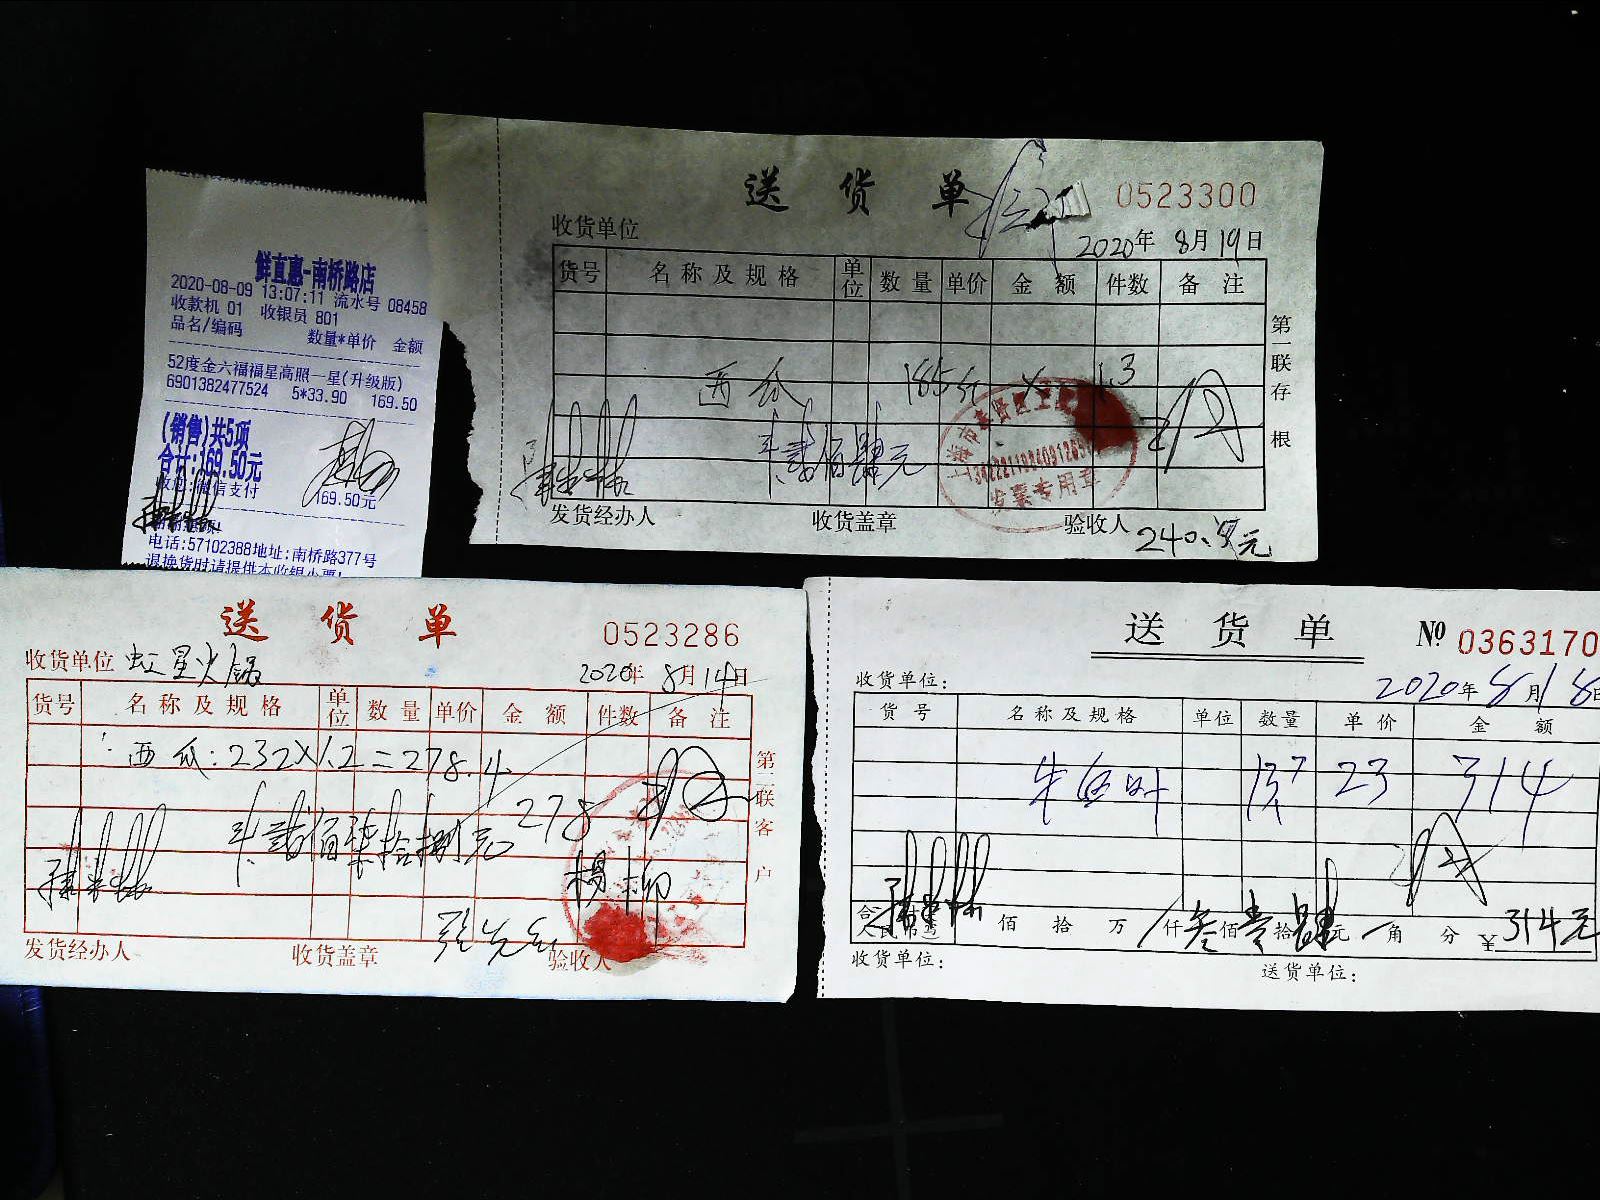 鲜直惠-南桥路店
2020-08-09 13:07:11 流水号 08458
收款机 01 收银员 801
品名/编码 数量*单价 金额
52度金六福福星高照一星(升级版)
6901382477524 5*33.90 169.50
(销售)共5项
合计:169.50元
微信支付 169.50元
电话:57102388地址:南桥路377号
退换货时请提供本收银小票!
送货单 0523300
收货单位 2020年 8月19日
货号 名称及规格 单位 数量 单价 金额 件数 备注
西瓜 185斤 × 1.3
贰佰肆元
发票专用章
发货经办人 收货盖章 验收人
元
第一联存根
送货单 0523286
收货单位 虹星火锅 2020年 8月14日
货号 名称及规格 单位 数量 单价 金额 件数 备注
西瓜:232×1.2=278.4
贰佰柒拾捌元 278
杨柳
发货经办人 收货盖章 验收人
第二联客户
送货单 № 0363170
收货单位: 2020年8月18日
货号 名称及规格 单位 数量 单价 金额
23 314
佰 拾 万 仟叁佰壹拾肆元 角 分 ¥314元
收货单位: 送货单位: